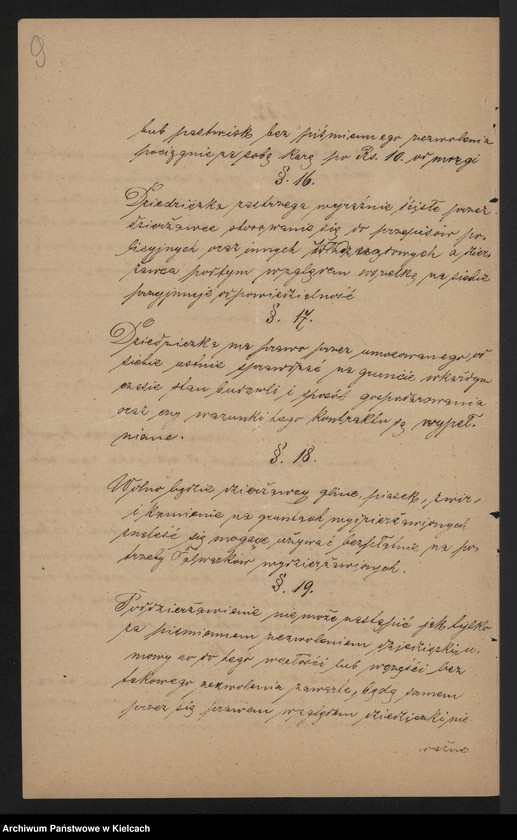 9
lub pastwisk bez piśmiennego zezwolenia
pociągnie za sobą karę po Rs. 10. od morgi
§. 16.
Dziedziczka zastrzega wyraźnie ścisłe przez
dzierżawcę stosowanie się do przepisów po-
licyjnych oraz innych rządowych a dzier-
żawca pod tym względem wszelką na siebie
przyjmuje odpowiedzialność
§. 17.
Dziedziczka ma prawo przez umocowanego od
siebie ustnie sprawdzać na gruncie w każdym
czasie stan budowli i sposób gospodarowania
oraz czy warunki tego kontraktu są wypeł-
niane.
§. 18.
Wolno będzie dzierżawcy glinę, piasek, żwir,
i kamienie na gruntach wydzierżawionych
znaleść się mogące używać bezpłatnie na po-
trzeby Folwarków wydzierżawionych.
§. 19.
Poddzierżawienie nie może nastąpić jak tylko
za piśmiennem zezwoleniem dziedziczki u-
mowy co do tego w całości lub w części bez
takowego zezwolenia zawarte, będą samem
przez się prawem względem dziedziczki nie
ważne
Archiwum Państwowe w Kielcach